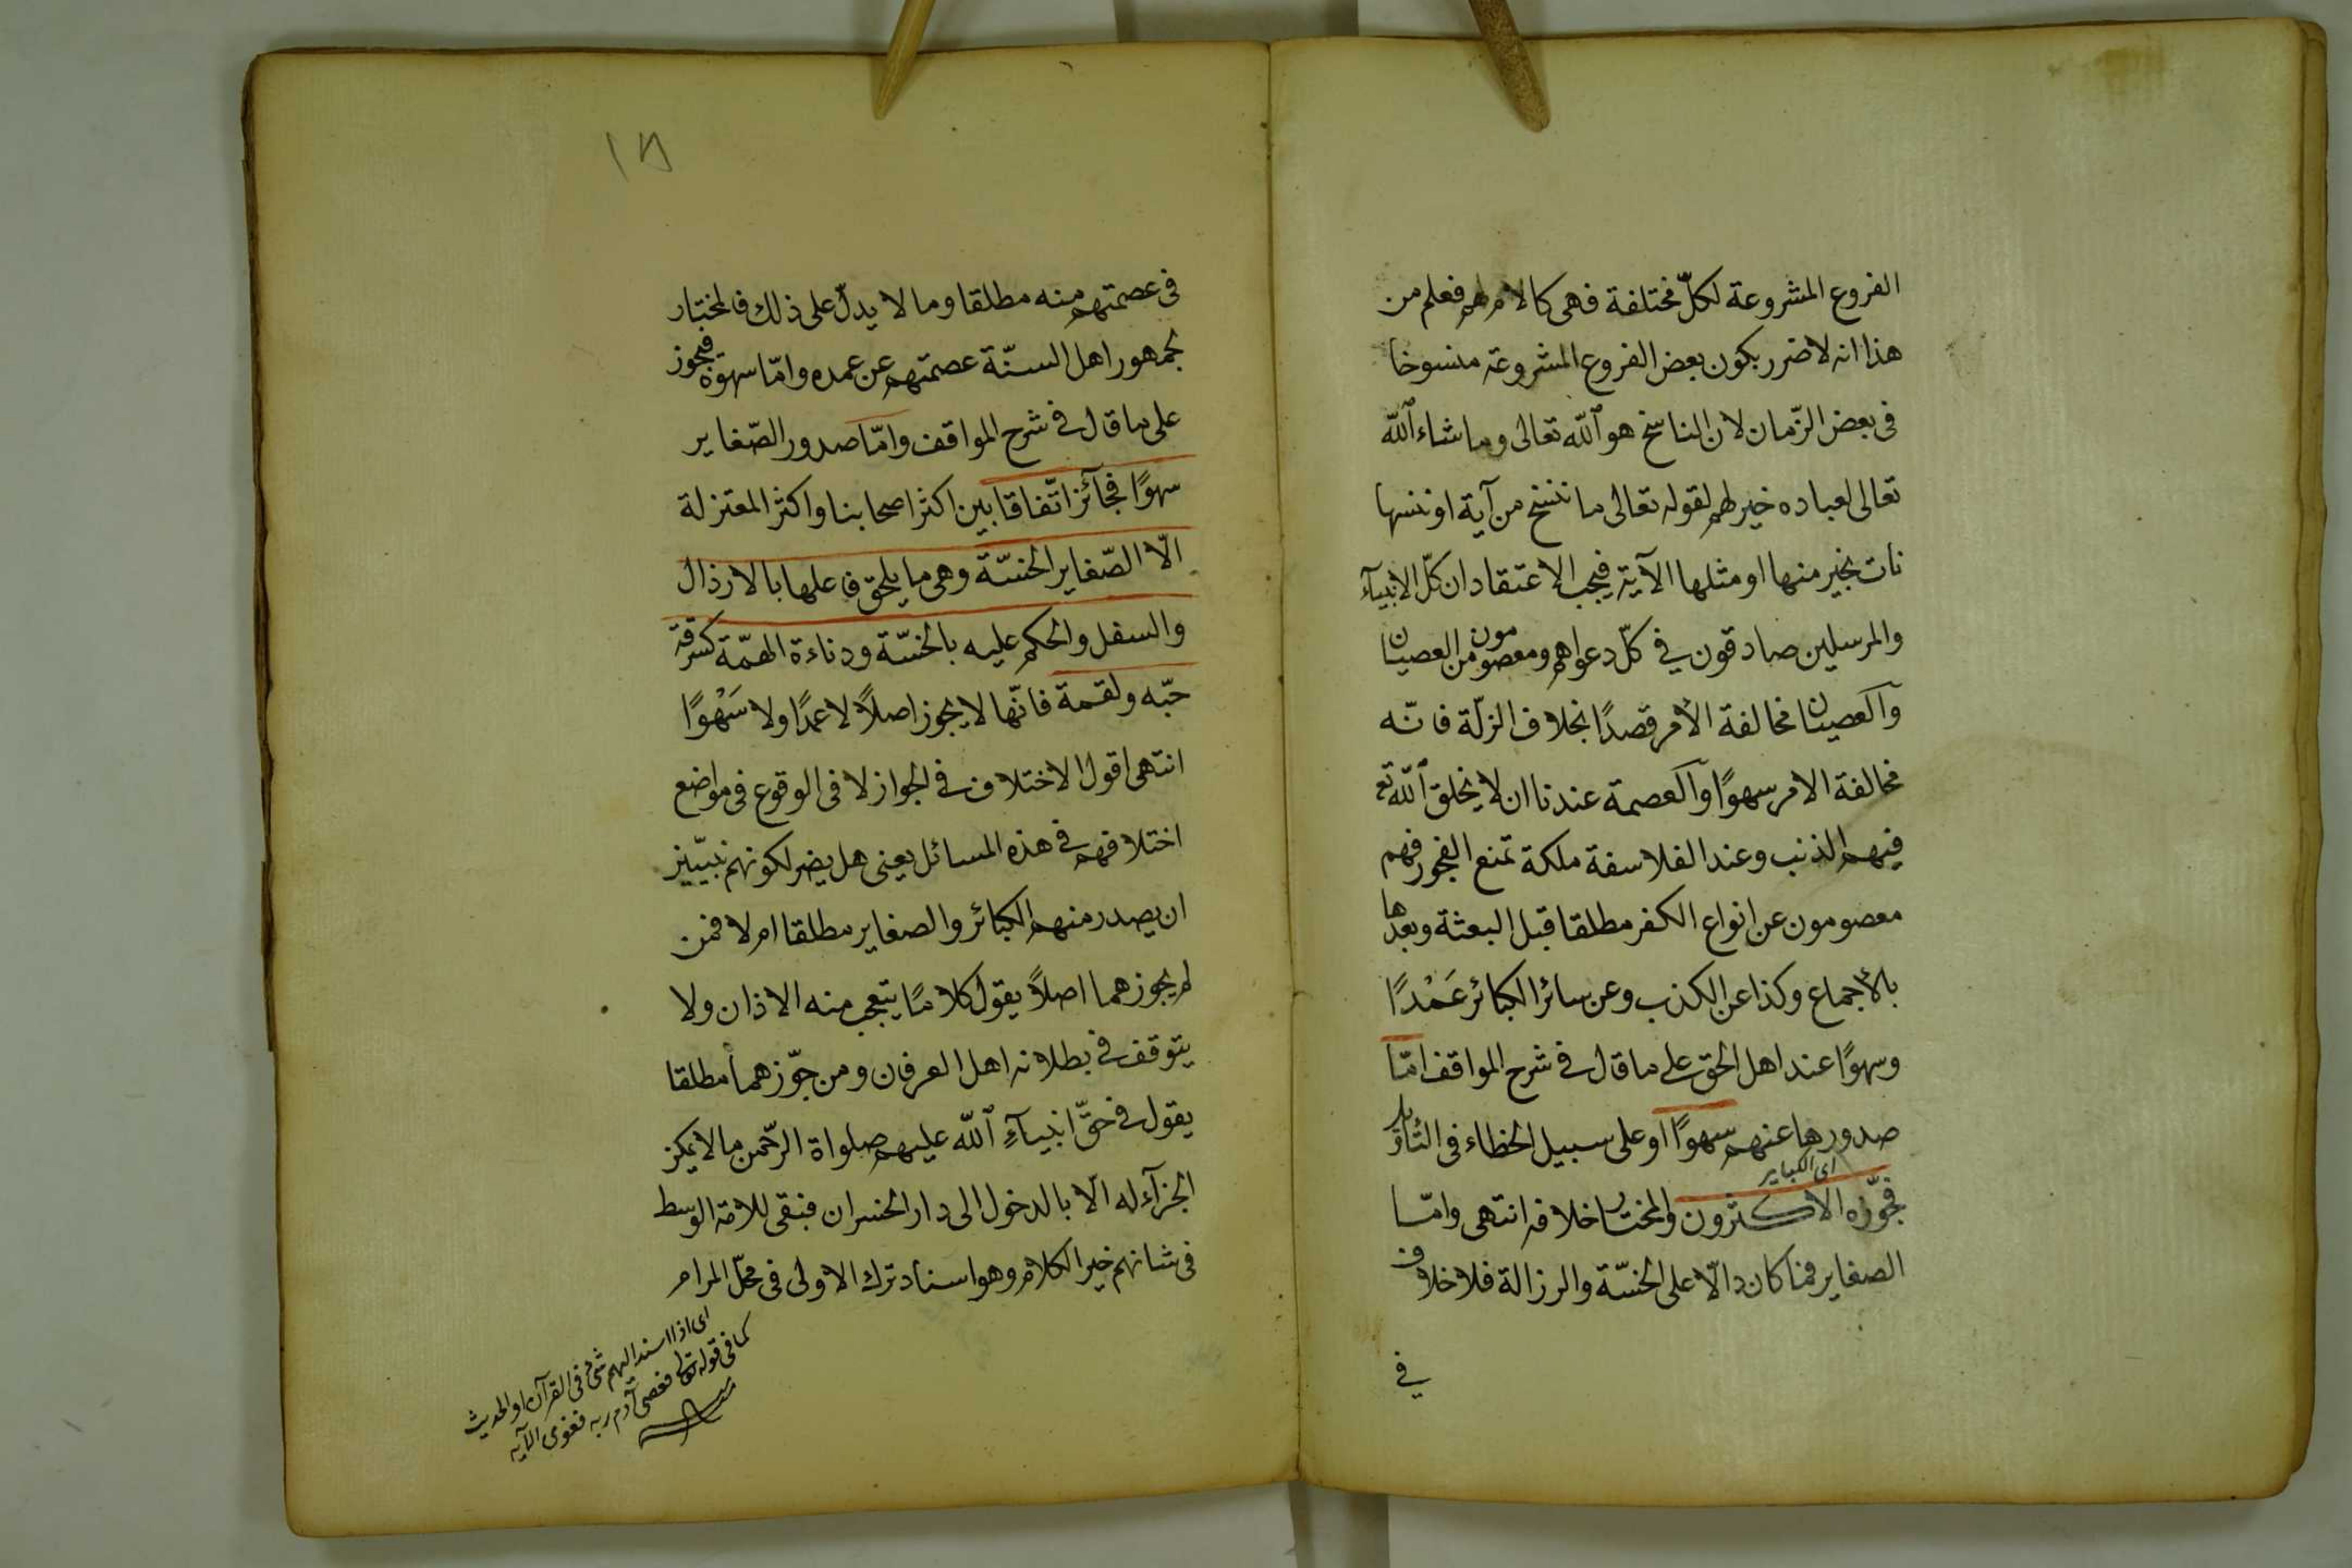 الفروع المشروعة لكلّ مختلفة فهى كالامر لهم فعلم من
هذا انه لا ضرر بكون بعض الفروع المشروعة منسوخا
فى بعض الزّمان لان الناسخ هو اللّه تعالى وما شاء اللّه
تعالى لعباده خير لهم لقوله تعالى ما ننسخ من آية او ننسها
نات بخير منها او مثلها الآية فيجب الاعتقاد ان كلّ الانبيآء
والمرسلين صادقون فى كلّ دعواهم ومعصومون من العصيان
والعصيان مخالفة الأمر قصدًا بخلاف الزلّة فانّه
مخالفة الامر سهوًا والعصمة عندنا ان لا يخلق اللّه تع
فيهم الذنب وعند الفلاسفة ملكة تمنع الفجور فهم
معصومون عن انواع الكفر مطلقا قبل البعثة وبعدها
بالاجماع وكذا عن الكذب وعن سائر الكبائر عَمْدًا
وسهوًا عند اهل الحق على ما قال فى شرح المواقف امّا
صدورها عنهم سهوًا او على سبيل الخطاء فى التأويل
اى الكباير
فجوّزه الاكثرون والمختار خلافه انتهى وامّا
الصغاير فما كان دالّا على الخسّة والرزالة فلا خلاف
فى
١٨
فى عصمتهم منه مطلقا وما لا يدلّ على ذلك فالمختار
لجمهور اهل السنّة عصمتهم عن عمده وامّا سهوه فيجوز
على ما قال فى شرح المواقف وامّا صدور الصّغاير
سهوًا فجائز اتّفاقا بين اكثر اصحابنا واكثر المعتزلة
الّا الصّغاير الخسّة وهى ما يلحق فاعلها بالارذال
والسفل والحكم عليه بالخسّة ودناءة الهمّة كسرقة
حبّه ولقمة فانّها لا يجوز اصلاً لا عمدًا ولا سَهْوًا
انتهى اقول الاختلاف فى الجواز لا فى الوقوع فى مواضع
اختلافهم فى هذه المسائل يعنى هل يضر لكونهم نبيّين
ان يصدر منهم الكبائر والصغاير مطلقا ام لا فمن
لم يجوزهما اصلاً يقول كلامًا يتعجب منه الاذان ولا
يتوقف فى بطلانه اهل العرفان ومن جوّزهما مطلقا
يقول فى حقّ انبيآءِ اللّه عليهم صلواة الرّحمن ما لا يمكن
الجزآء له الّا بالدخول الى دار الخسران فبقى للامة الوسط
فى شانهم خير الكلام وهو اسناد ترك الاولى فى محلّ المرام
اى اذا اسند اليهم شئ فى القرآن او الحديث
كما فى قوله تعالى فعصى آدم ربه فغوى الآية